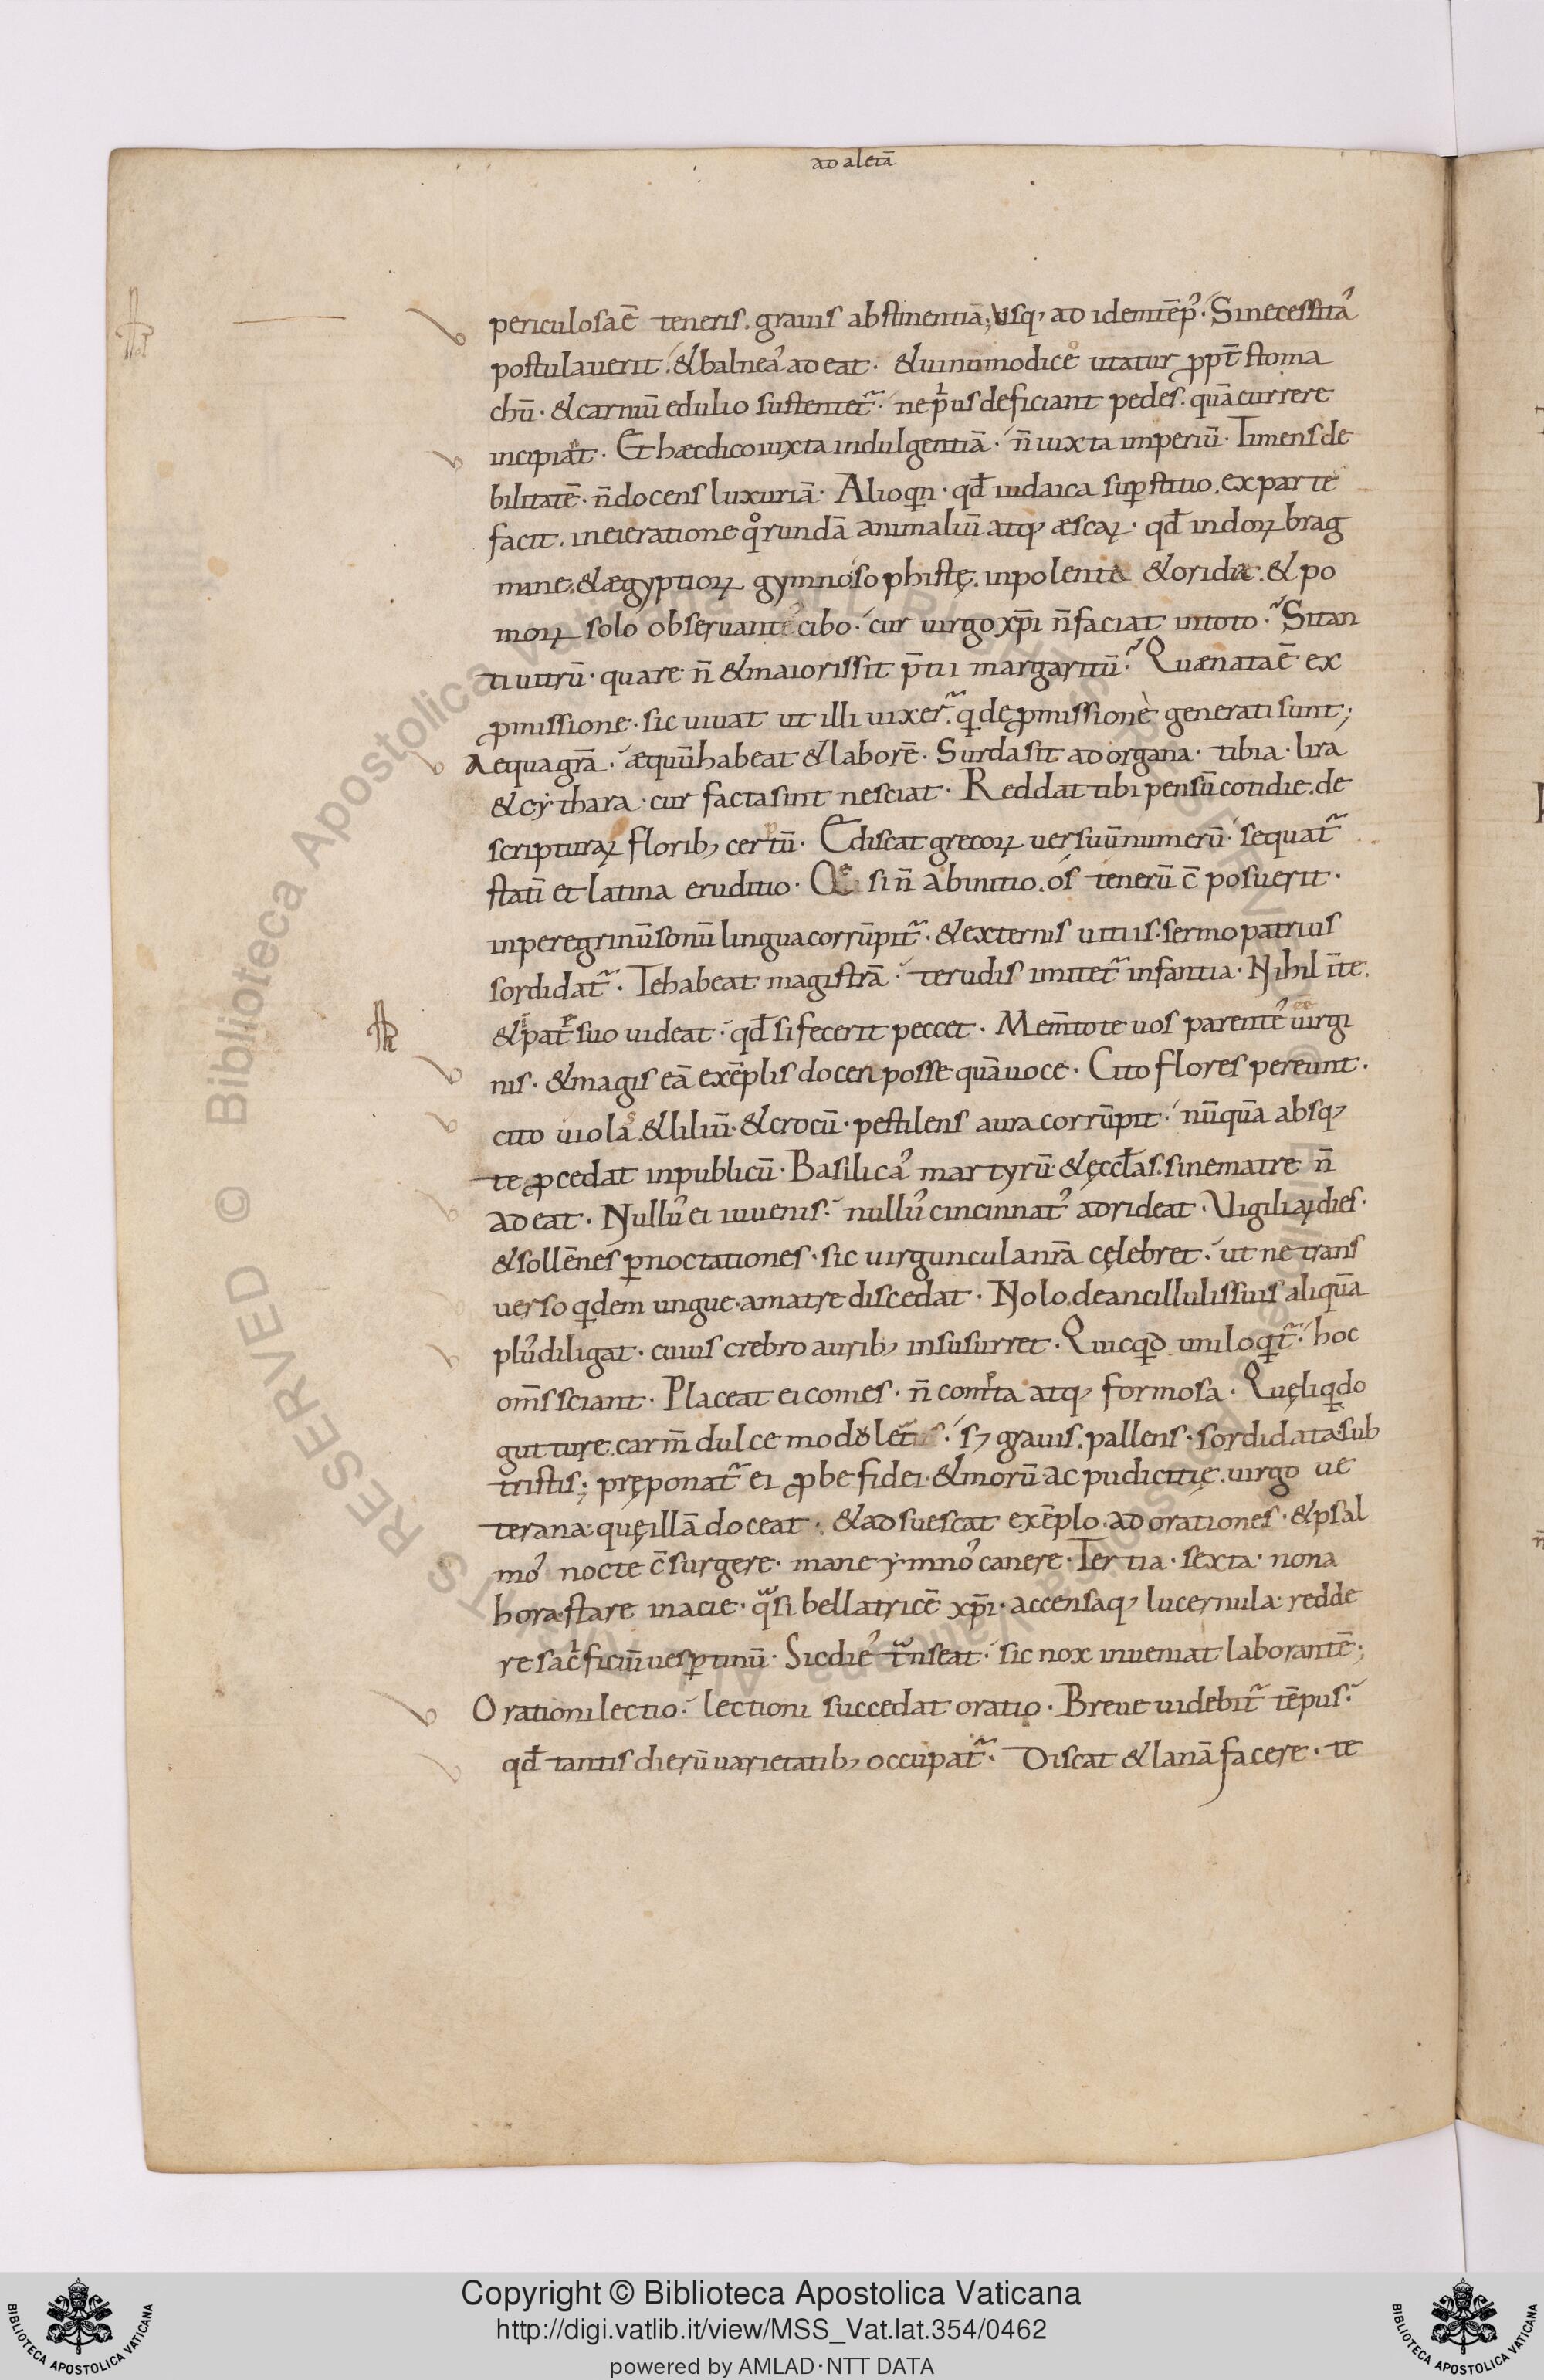 ad aletā
periculosa ē teneris. grauis abstinentiā; Vsq; ad idemtēp᾿. Si necessita᾿
postulauerit. & balnea᾿ adeat. & uinū modice utatur ꝓpt̄ stoma
chū. & carniū edulio sustentet᷑. ne pͥus deficiant pedes. quā currere
incipiat. Et hæc dico iuxta indulgentiā. n̄ iuxta imperiū. Timens de
bilitatē. n̄ docens luxuriā. Alioqͥn. qđ iudaica suꝑstitio. ex parte
facit. in eieratione qͦrundā animaliū atq; æscaꝝ. qđ indoꝝ brag
mane. & ægyptioꝝ gymnosophistę. in polenta & oridia. & po
moꝝ solo obseruant cibo. cur uirgo xp̄i n̄ faciat in toto. Si tan
ti uitrū. quare n̄ & maioris sit p̄tii margaritū. Quæ nata ē ex
ꝓmissione. sic uiuat ut illi uixer᷑. qͥ de ꝓmissione generati sunt;
Aequa gr̄a. æquū habeat & laborē. Surda sit ad organa. tibia. lira
& cythara. cur facta sint nesciat. Reddat tibi pensū cotidie. de
scripturaꝝ florib; certū. Ediscat grecoꝝ uersuū numerū. sequat᷑
statī et latina eruditio. Qͣe si n̄ ab initio. os tenerū c̄posuerit.
in peregrinū sonū lingua corrūpit᷑. & externis uitiis. sermo patrius
sordidat᷑. Te habeat magistrā. te rudis imitet᷑ infantia. Nihil ī te.
& patͬ suo uideat. qđ si fecerit peccet. Mem̄tote uos parente᾿ uirgi
nis. & magis eā exēplis doceri posse quā uoce. Cito flores pereunt.
cito uiola᾿. & liliū. & crocū. pestilens aura corrūpit. nūquā absq;
te ꝓcedat in publicū. Basilica᾿ martyrū & ęccl̄as. sine matre n̄
adeat. Nullu᾿ ei iuuenis. nullu᾿ cincinnat᾿ adrideat. Vigiliaꝝ dies.
& sollēnes ꝑnoctationes. sic uirguncula nr̄a cęlebret. ut ne trans
uerso qͥdem ungue. a matre discedat. Nolo. de ancillulis suis aliquā
plu᾿ diligat. cuius crebro aurib; insusurret. Quicqͥd uni loqͥt᷑. hoc
om̄s sciant. Placeat ei comes. n̄ compta atq; formosa. Quę liqͥdo
gutture. carm̄ dulce modulet᷑. s; grauis. pallens. sordidata. sub
tristis; pręponat᷑ ei ꝓbe fidei. & morū ac pudicitię. uirgo ue
terana. quę illā doceat. & adsuescat exēplo. ad orationes. & psal
mo᾿ nocte c̄surgere. mane ymno᾿ canere. Tertia. sexta. nona
hora. stare in acie. qͣsi bellatricē xp̄i. accensaq; lucernula. redde
re sacͥficiū uesꝑtinū. Sic die᾿ tͣnseat. sic nox inueniat laborantē;
Orationi lectio. lectioni succedat oratio. Breue uidebit᷑ tēpus.
qđ tantis dierū uarietatib; occupat᷑. Discat & lanā facere. te
Copyright © Biblioteca Apostolica Vaticana
http://digi.vatlib.it/view/MSS_Vat.lat.354/0462
powered by AMLAD·NTT DATA
BIBLIOTECA APOSTOLICA VATICANA
BIBLIOTECA APOSTOLICA VATICANA